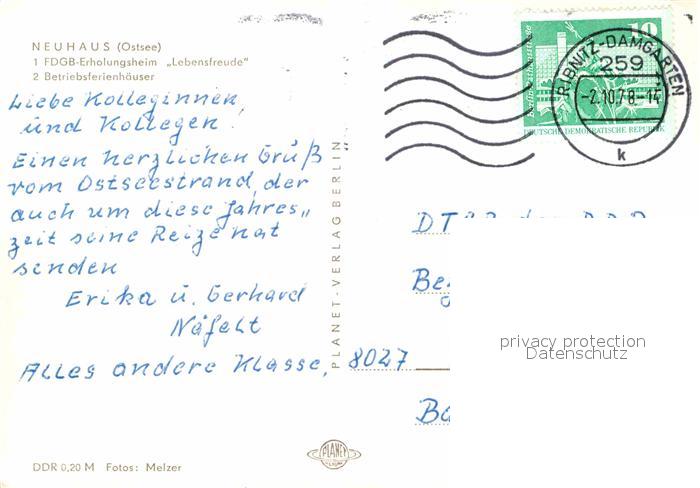 NEUHAUS (Ostsee)
1 FDGB-Erholungsheim „Lebensfreude"
2 Betriebsferienhäuser
Liebe Kolleginnen
und Kollegen!
Einen herzlichen Gruß
vom Ostseestrand, der
auch um diese Jahres„
zeit seine Reize hat
senden
Erika u. Gerhard
Alles andere Klasse.
PLANET-VERLAG BERLIN
10
DEUTSCHE DEMOKRATISCHE REPUBLIK
RIBNITZ-DAMGARTEN
259
-2.10.78-14
k
8027
privacy protection
Datenschutz
PLANET
DDR 0,20 M Fotos: Melzer